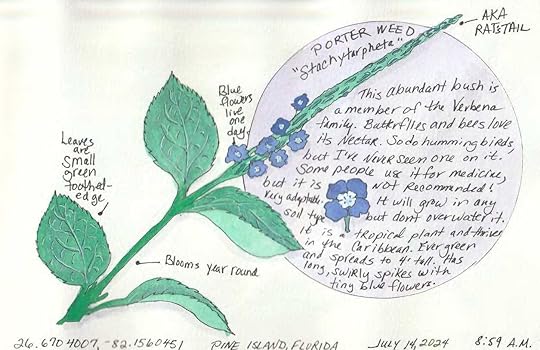 AKA
RATSTAIL
PORTER WEED
"Stachytarpheta"
This abundant bush is
a member of the Verbena
family. Butterflies and bees love
its Nectar. So do hummingbirds,
but I've Never seen one on it.
Some people use it for medicine,
but it is NOT Recommended!
Very adaptable. It will grow in any
soil type but don't overwater it.
It is a tropical plant and thrives
in the Caribbean. Evergreen
and spreads to 4' tall. Has
long, swirly spikes with
tiny blue flowers.
Blue
flowers
live
one
day
Leaves
are
small
green
toothed-
edge
Blooms year round
26.6704007, -82.1560451 PINE ISLAND, FLORIDA July 14, 2024 8:59 A.M.